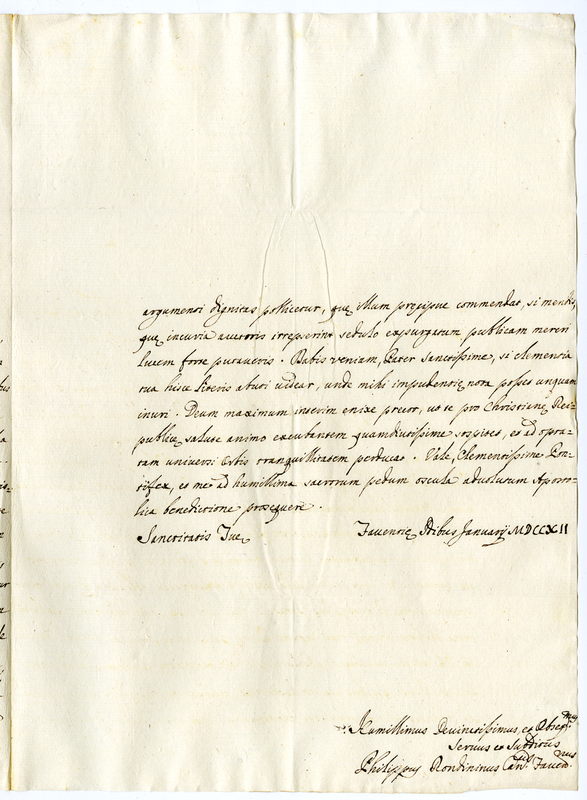 argumenti dignitas pollicetur, quę illum pręcipue commendat, si mendis,
quę incuria auctoris irrepserint sedulo expurgatum publicam mereri
lucem forte putaveris. Dabis veniam, Pater Sanctissime, si clementia
tua hisce literis abuti videar, unde mihi impudentię nota posset unquam
inuri. Deum maximum interim enixe precor, ut te pro Christianę Rei-
publicę salute animo excubantem quamdiutissime sospitet, et ad opta-
tam universi Orbis tranquillitatem perducat. Vale, Clementissime Pon-
tifex, et me ad humillima sacrorum pedum oscula advolutum Aposto-
lica benedictione prosequere.
Sanctitatis Tuę
Faventię Idibus Januarij MDCCXII
Humillimus Devinctissimus, et Obseq.mus
Servus et Subditus
Philippus Rondininus Can.cus Faven.